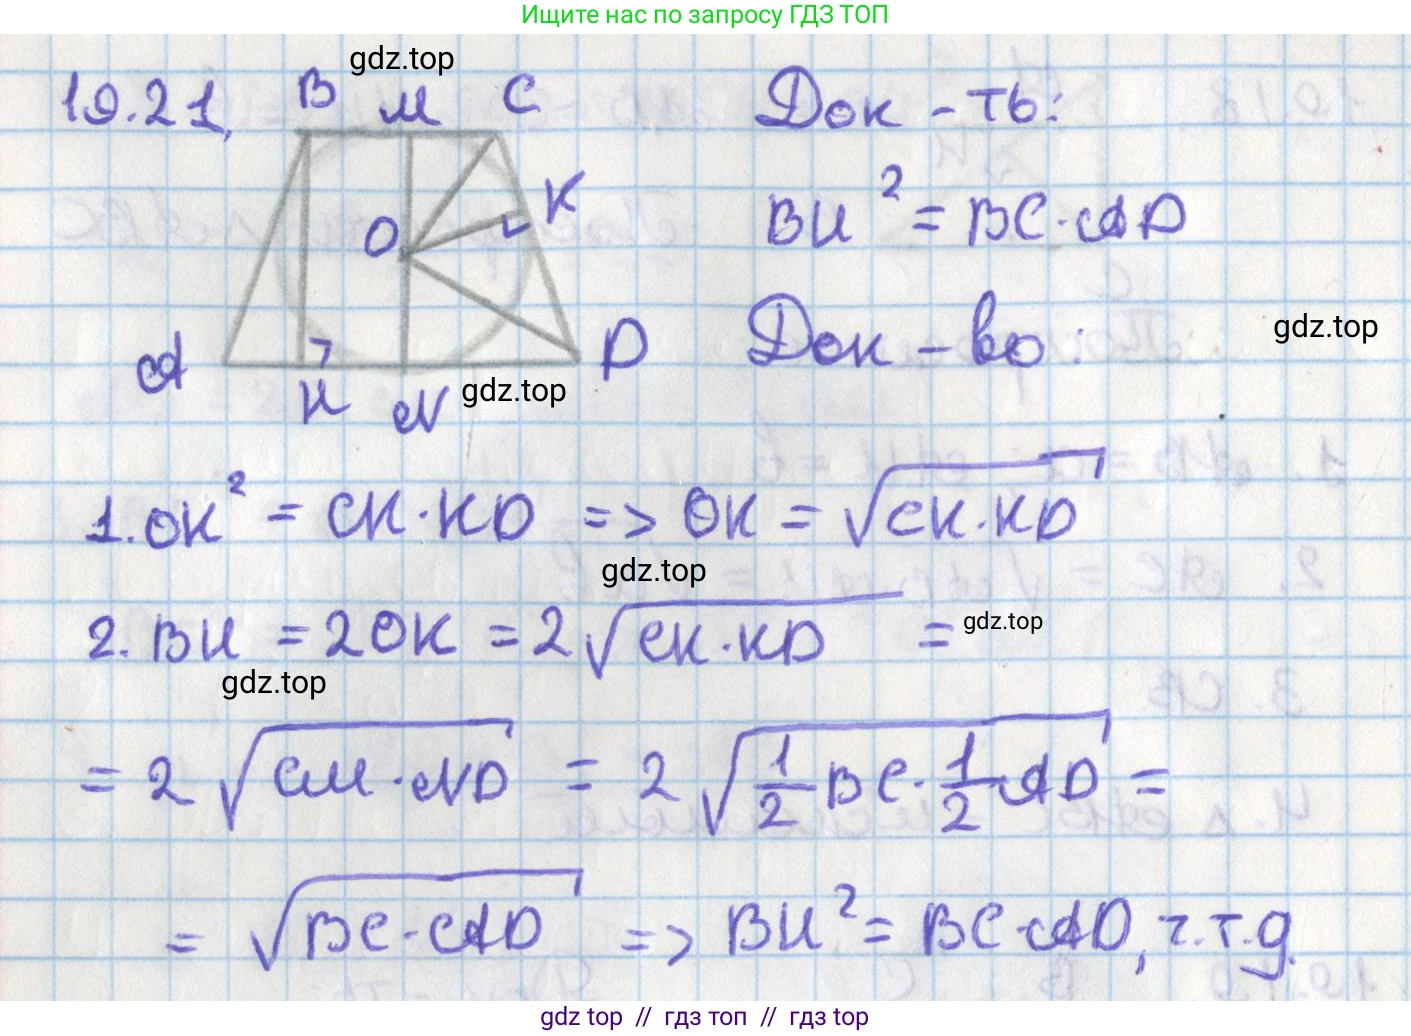 Ищите нас по запросу ГДЗ ТОП
gdz.top
19.21. B M C Док-ть:
K
O BH² = BC·AD
Док-во:
gdz.top
A H N D
gdz.top
1. OK² = CK·KD => OK = √CK·KD
gdz.top
2. BH = 2OK = 2√CK·KD =
gdz.top
gdz.top
= 2√CM·ND = 2√1/2 BC·1/2 AD =
= √BC·AD => BH² = BC·AD, ч.т.д.
gdz top // гдз топ // gdz top